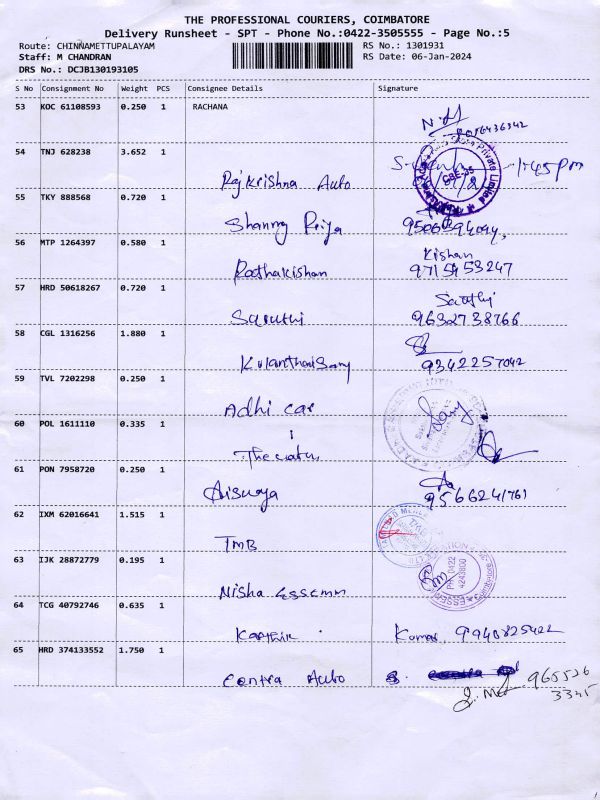 THE PROFESSIONAL COURIERS, COIMBATORE
Delivery Runsheet - SPT - Phone No.:0422-3505555 - Page No.:5
Route: CHINNAMETTUPALAYAM RS No.: 1301931
Staff: M CHANDRAN RS Date: 06-Jan-2024
DRS No.: DCJB130193105
S No Consignment No Weight PCS Consignee Details Signature
53 KOC 61108593 0.250 1 RACHANA
54 TNJ 628238 3.652 1 Raj Krishna Auto 1.45 pm
CBE-35
Private Limited
55 TKY 888568 0.720 1 Shanmy Priya
56 MTP 1264397 0.580 1 Radhakishan Kishan
9715953247
57 HRD 50618267 0.720 1 Saruthi
9632738766
58 CGL 1316256 1.880 1 9342257042
59 TVL 7202298 0.250 1 Adhi car
60 POL 1611110 0.335 1
61 PON 7958720 0.250 1 9566241761
62 IXM 62016641 1.515 1 TMB
63 IJK 28872779 0.195 1 Nisha Essemm
PH: 0422
4243800
64 TCG 40792746 0.635 1 Karthik Kumar 9940825422
65 HRD 374133552 1.750 1 Centra Auto
965526
3345